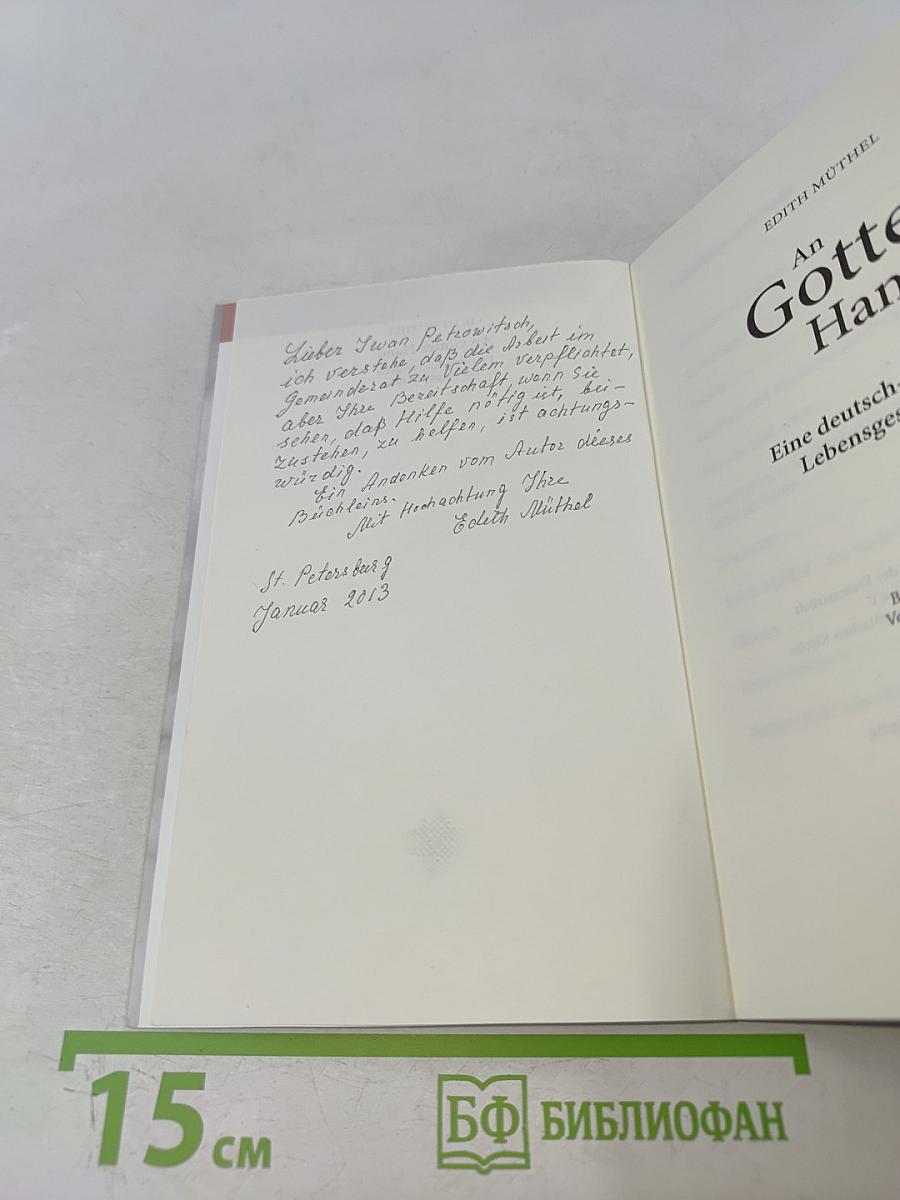 Lieber Iwan Petrowitsch,
ich verstehe, daß die Arbeit im
Gemeinderat zu Vielem verpflichtet,
aber Ihre Bereitschaft, wenn Sie
sehen, daß Hilfe nötig ist, bei-
zustehen, zu helfen, ist achtungs-
würdig.
Ein Andenken vom Autor dieses
Büchleins.
Mit Hochachtung Ihre
Edith Müthel
St. Petersburg
Januar 2013
EDITH MÜTHEL
An
Gotte
Han
Eine deutsch-
Lebensges
B
Ve
15 см
БФ БИБЛИОФАН